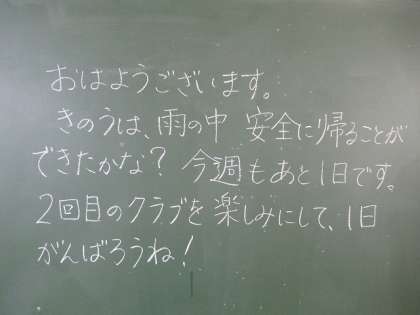 おはようございます。
きのうは、雨の中 安全に帰ることが
できたかな? 今週もあと1日です。
2回目のクラブを楽しみにして、1日
がんばろうね!